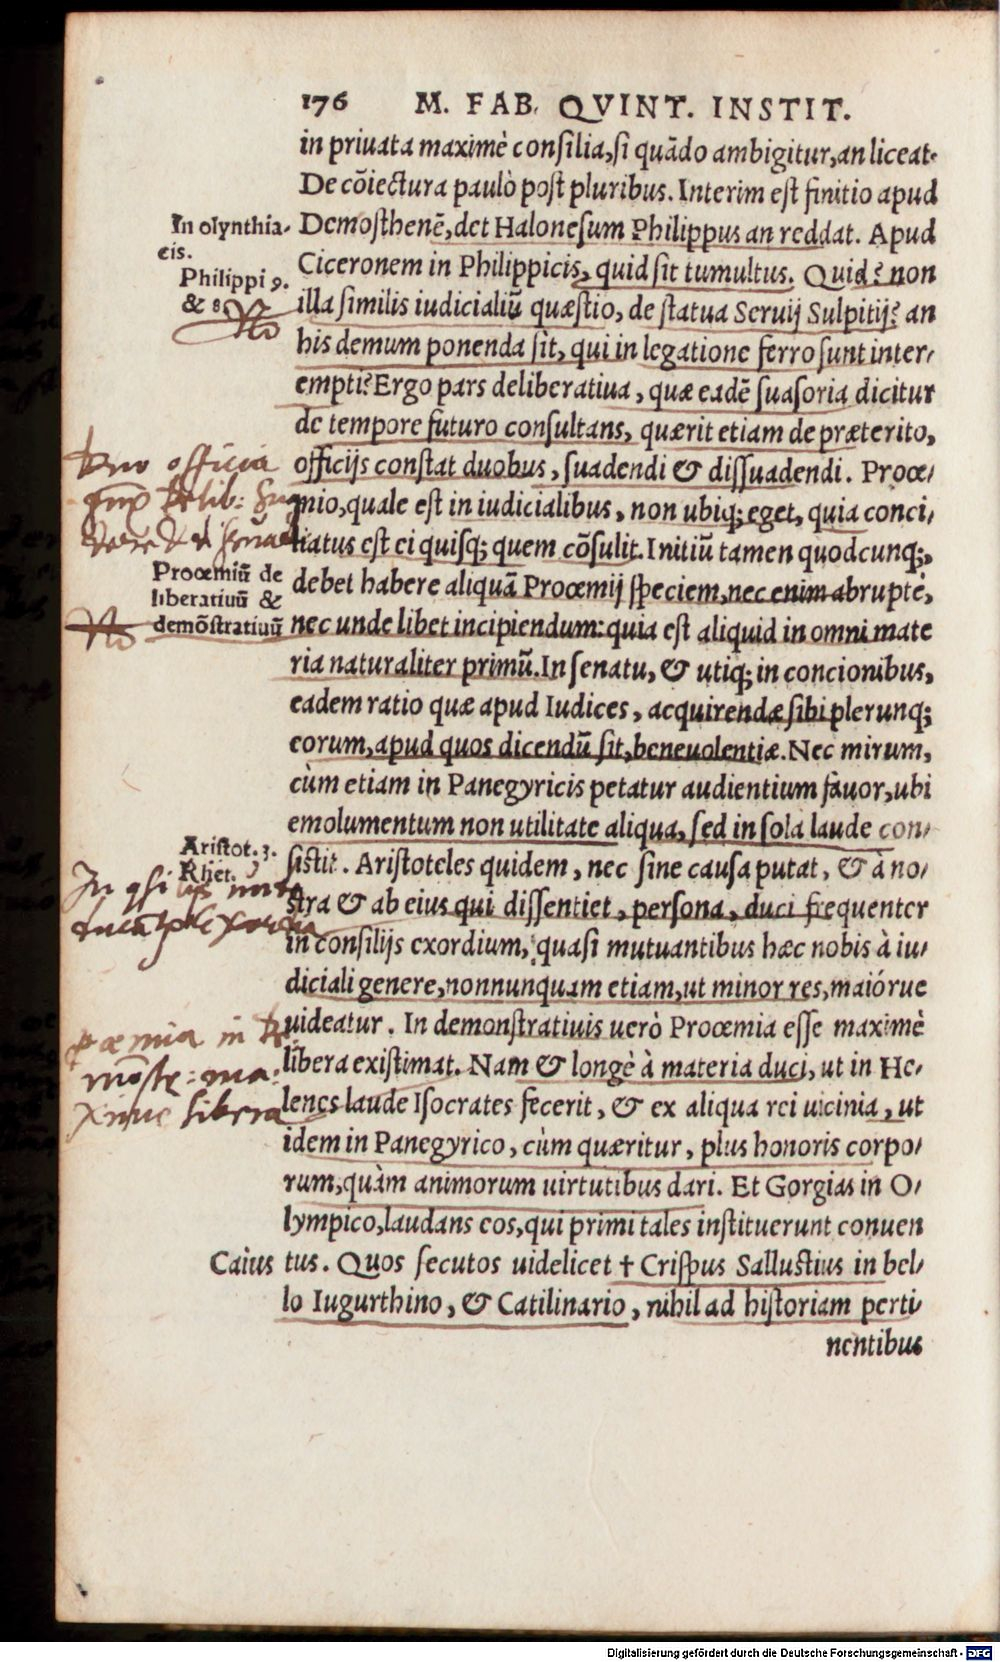 176 M. FAB. QVINT. INSTIT.
in priuata maximè consilia, si quãdo ambigitur, an liceat.
De cõiectura paulò post pluribus. Interim est finitio apud
In olynthia-
Demosthenẽ, det Halonesum Philippus an reddat. Apud
cis.
Ciceronem in Philippicis, quid sit tumultus. Quid? non
Philippi 9.
& 8.
illa similis iudicialiũ quæstio, de statua Seruij Sulpitij? an
his demum ponenda sit, qui in legatione ferro sunt inter-
empti? Ergo pars deliberatiua, quæ eadẽ suasoria dicitur
de tempore futuro consultans, quærit etiam de præterito,
officijs constat duobus, suadendi & dissuadendi. Procœ-
mio, quale est in iudicialibus, non ubiq; eget, quia conci-
liatus est ei quisq; quem cõsulit. Initiũ tamen quodcunq;,
Proœmiũ de
liberatiuũ &
demõstratiuũ
debet habere aliquã Proœmij speciem, nec enim abruptè,
nec unde libet incipiendum: quia est aliquid in omni mate
ria naturaliter primũ. In senatu, & utiq; in concionibus,
eadem ratio quæ apud Iudices, acquirendæ sibi plerunq;
eorum, apud quos dicendũ sit, beneuolentiæ. Nec mirum,
cùm etiam in Panegyricis petatur audientium fauor, ubi
emolumentum non utilitate aliqua, sed in sola laude con-
Aristot. 3.
Rhet.
sistit. Aristoteles quidem, nec sine causa putat, & à no-
stra & ab eius qui dissentiet, persona, duci frequenter
in consilijs exordium, quasi mutuantibus hæc nobis à iu-
diciali genere, nonnunquam etiam, ut minor res, maiórue
uideatur. In demonstratiuis uerò Proœmia esse maximè
libera existimat. Nam & longè à materia duci, ut in He-
lenes laude Isocrates fecerit, & ex aliqua rei uicinia, ut
idem in Panegyrico, cùm quæritur, plus honoris corpo-
rum, quàm animorum uirtutibus dari. Et Gorgias in O-
lympico, laudans eos, qui primi tales instituerunt conuen
Caius
tus. Quos secutos uidelicet † Crispus Sallustius in bel-
lo Iugurthino, & Catilinario, nihil ad historiam perti-
nentibus
officia
in
libera
Digitalisierung gefördert durch die Deutsche Forschungsgemeinschaft - DFG